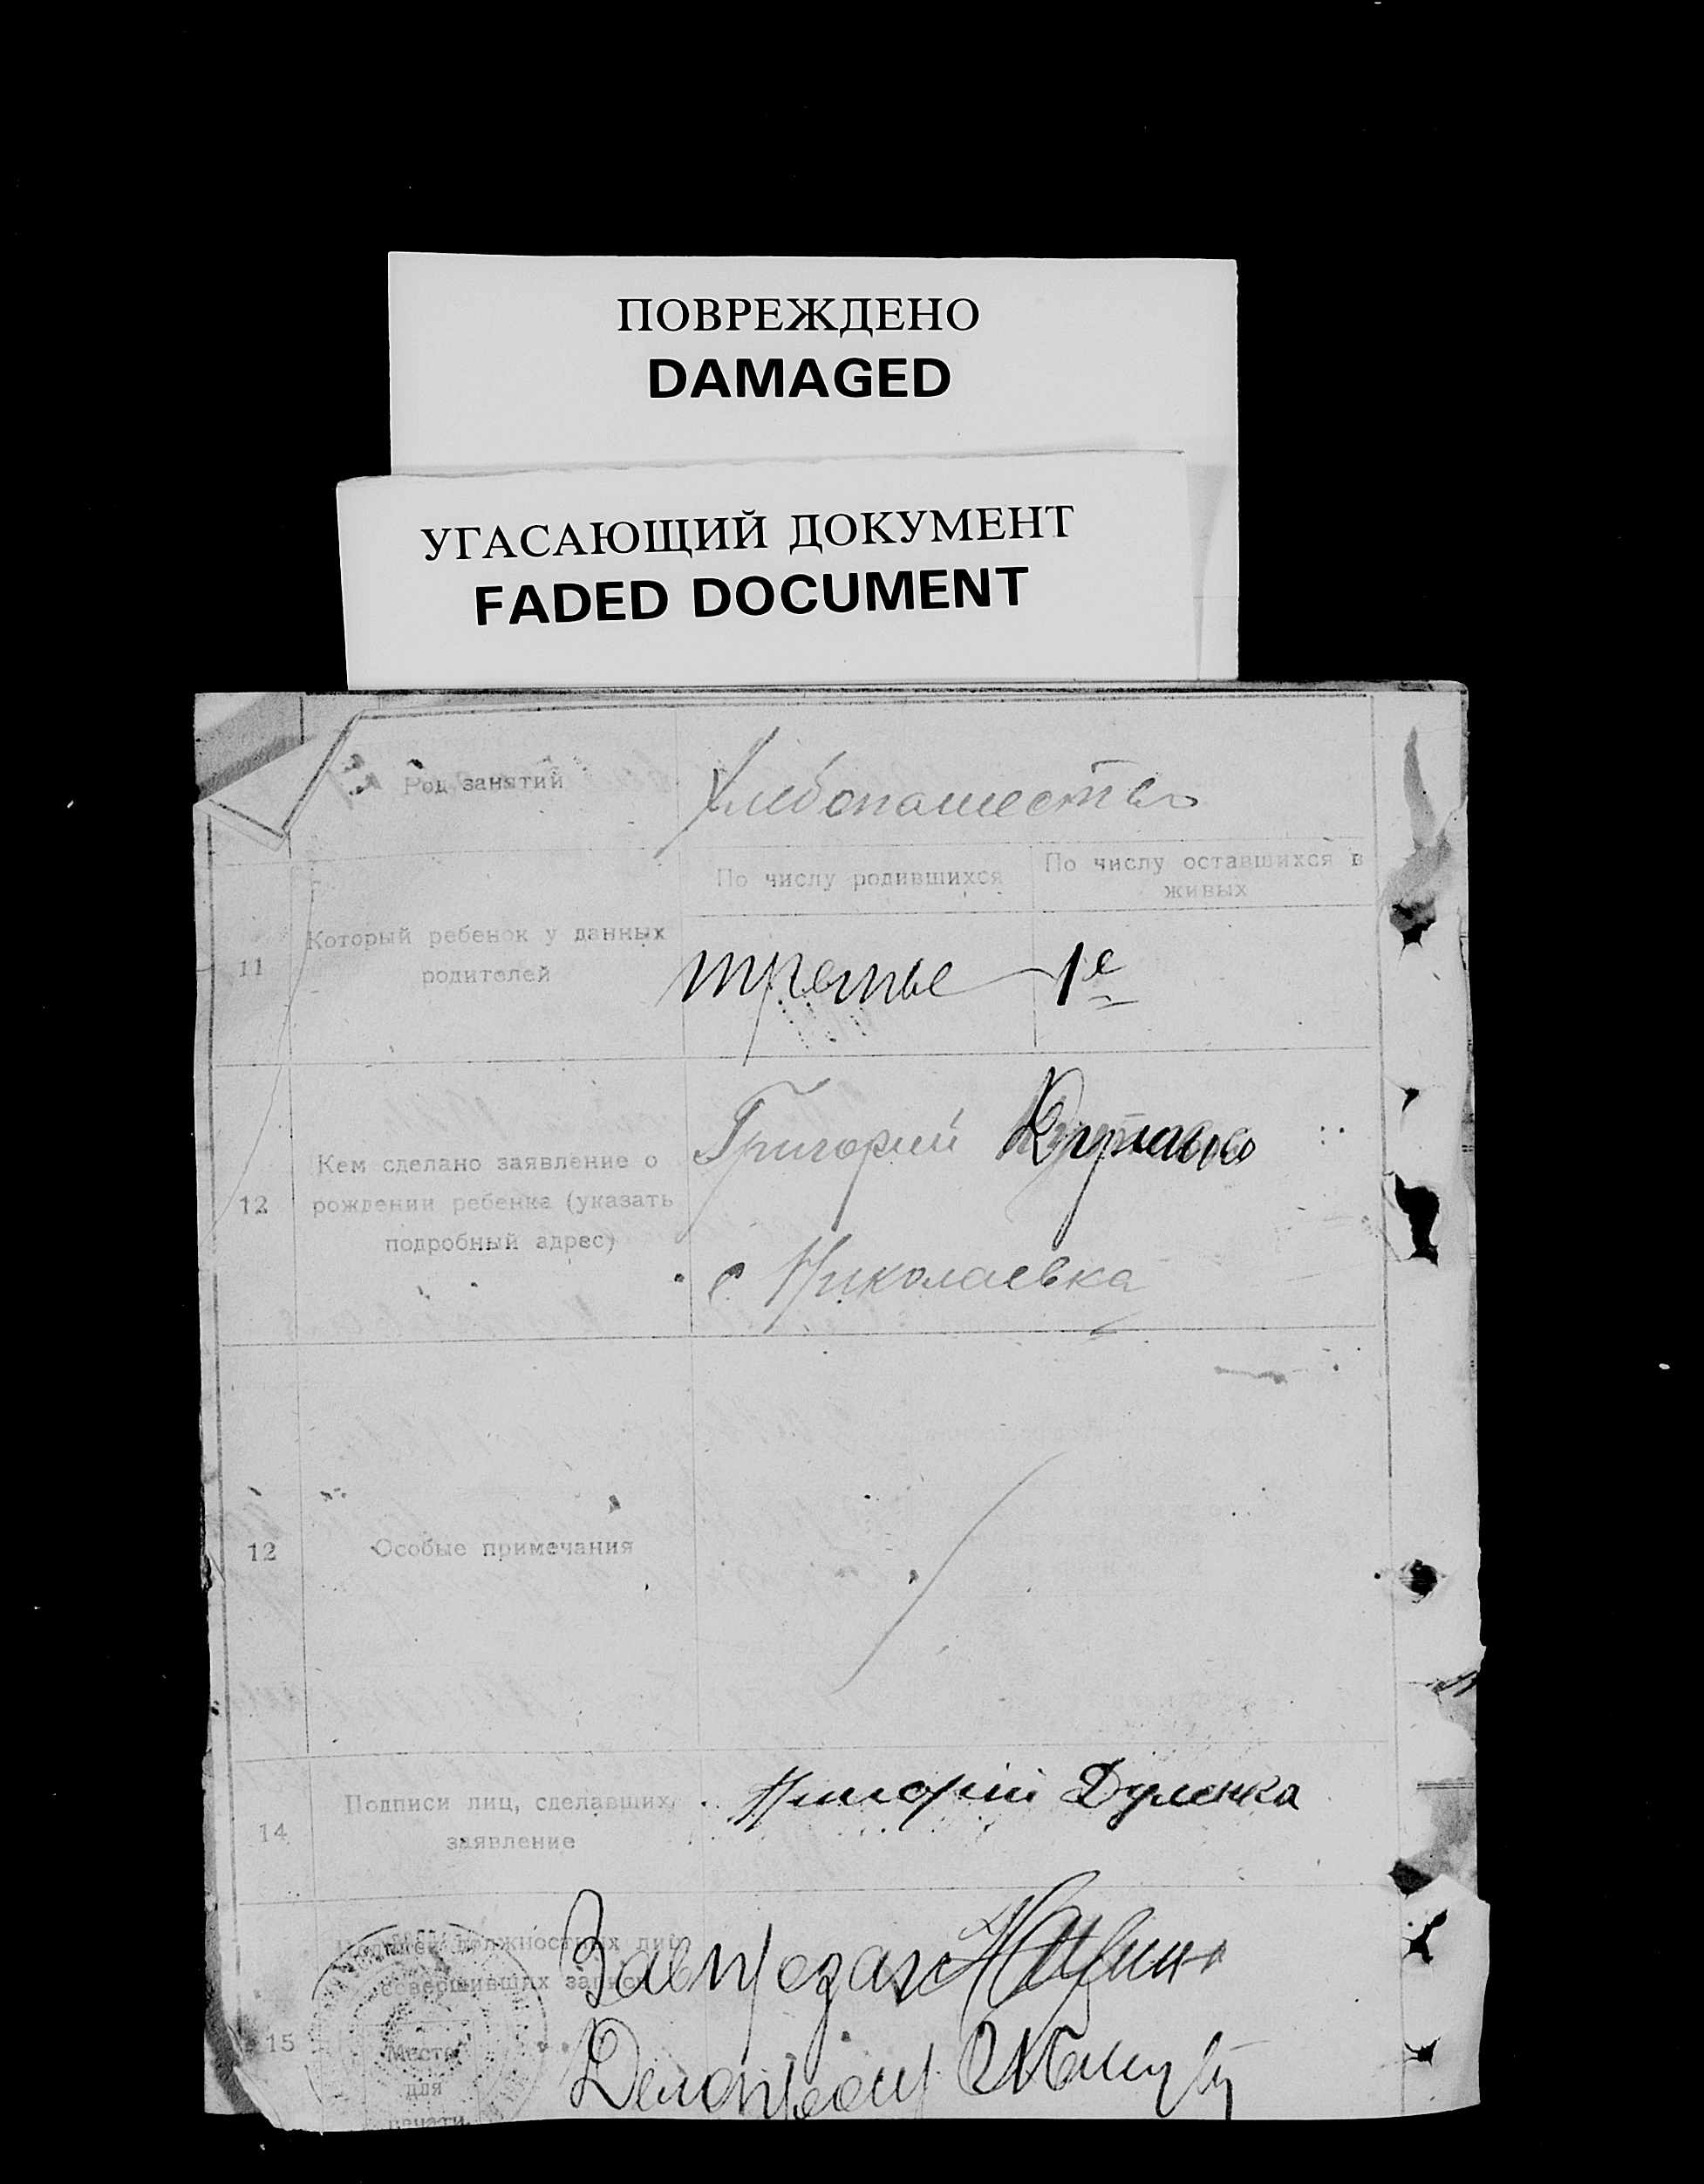 ПОВРЕЖДЕНО
DAMAGED
УГАСАЮЩИЙ ДОКУМЕНТ
FADED DOCUMENT
Род занятий
Хлебопашество
По числу родившихся
По числу оставшихся в
живых
11
Который ребенок у данных
родителей
третье
1е
12
Кем сделано заявление о
рождении ребенка (указать
подробный адрес)
Григорий
с Николаевка
12
Особые примечания
14
Подписи лиц, сделавших
заявление
15
должностных лиц
совершивших запись
Место
для
печати